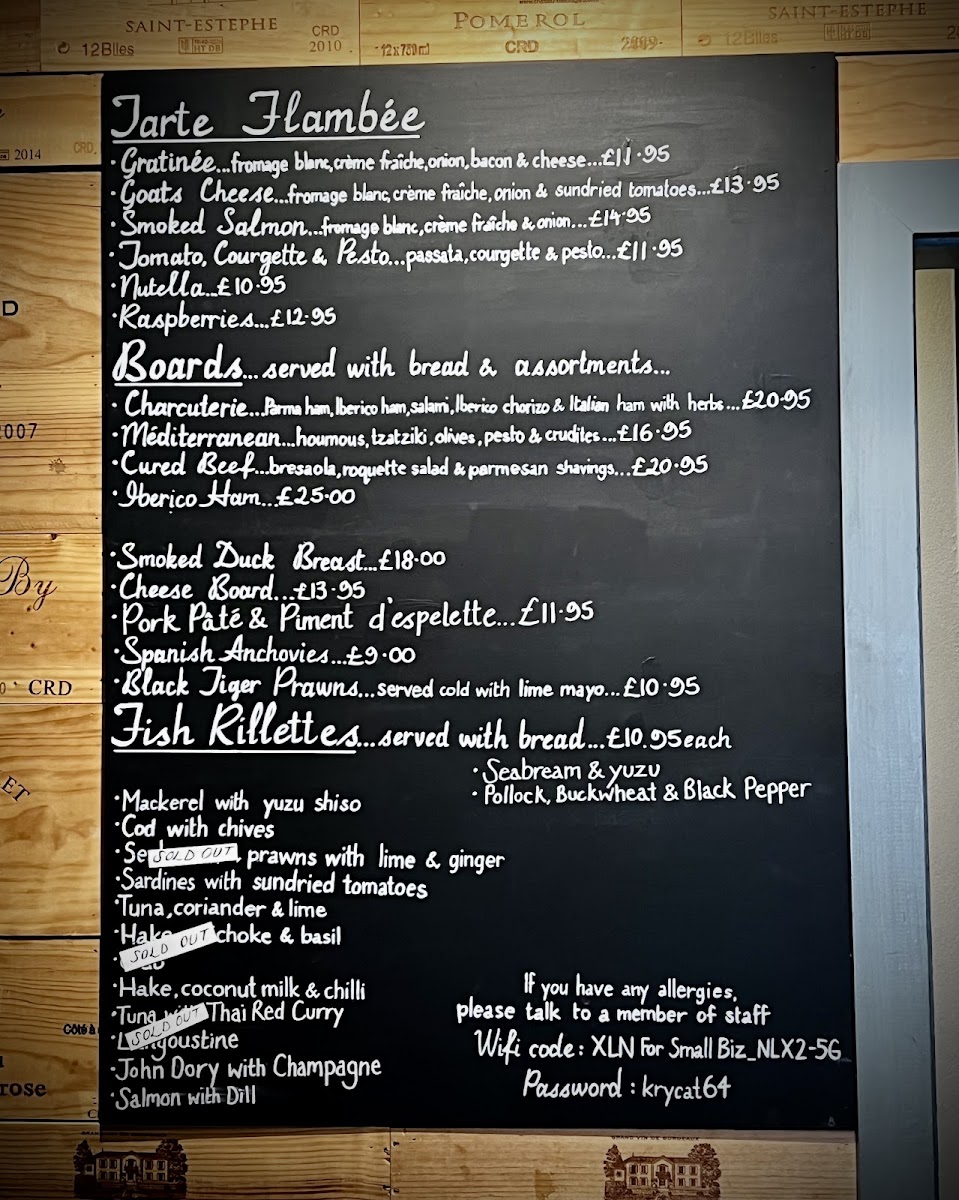 SAINT-ESTEPHE
CRD
2010
12Blles
POMEROL
12x750ml
CRD
2009
SAINT-ESTEPHE
12Blles
2014
CRD
Tarte Flambée
·Gratinée...fromage blanc,crème fraîche,onion,bacon & cheese...£11·95
·Goats Cheese...fromage blanc,crème fraîche,onion & sundried tomatoes...£13·95
·Smoked Salmon...fromage blanc,crème fraîche & onion...£14·95
·Tomato, Courgette & Pesto...passata,courgette & pesto...£11·95
·Nutella...£10·95
·Raspberries...£12·95
Boards...served with bread & assortments...
·Charcuterie...Parma ham,Iberico ham,salami,Iberico chorizo & Italian ham with herbs...£20·95
·Méditerranean...houmous,tzatziki,olives,pesto & crudites...£16·95
·Cured Beef...bresaola,roquette salad & parmesan shavings...£20·95
·Iberico Ham...£25·00
·Smoked Duck Breast...£18·00
·Cheese Board...£13·95
·Pork Pâté & Piment d'espelette...£11·95
·Spanish Anchovies...£9·00
·Black Tiger Prawns...served cold with lime mayo...£10·95
Fish Rillettes...served with bread...£10.95each
·Seabream & yuzu
·Pollock, Buckwheat & Black Pepper
·Mackerel with yuzu shiso
·Cod with chives
SOLD OUT prawns with lime & ginger
·Sardines with sundried tomatoes
·Tuna,coriander & lime
·Hake choke & basil
SOLD OUT
·Hake,coconut milk & chilli
·Tuna with Thai Red Curry
SOLD OUT
·Langoustine
·John Dory with Champagne
·Salmon with Dill
If you have any allergies,
please talk to a member of staff
Wifi code: XLN For Small Biz_NLX2-5G
Password : krycat64
2007
By
CRD
ET
Côté
rose
GRAND VIN DE BORDEAUX